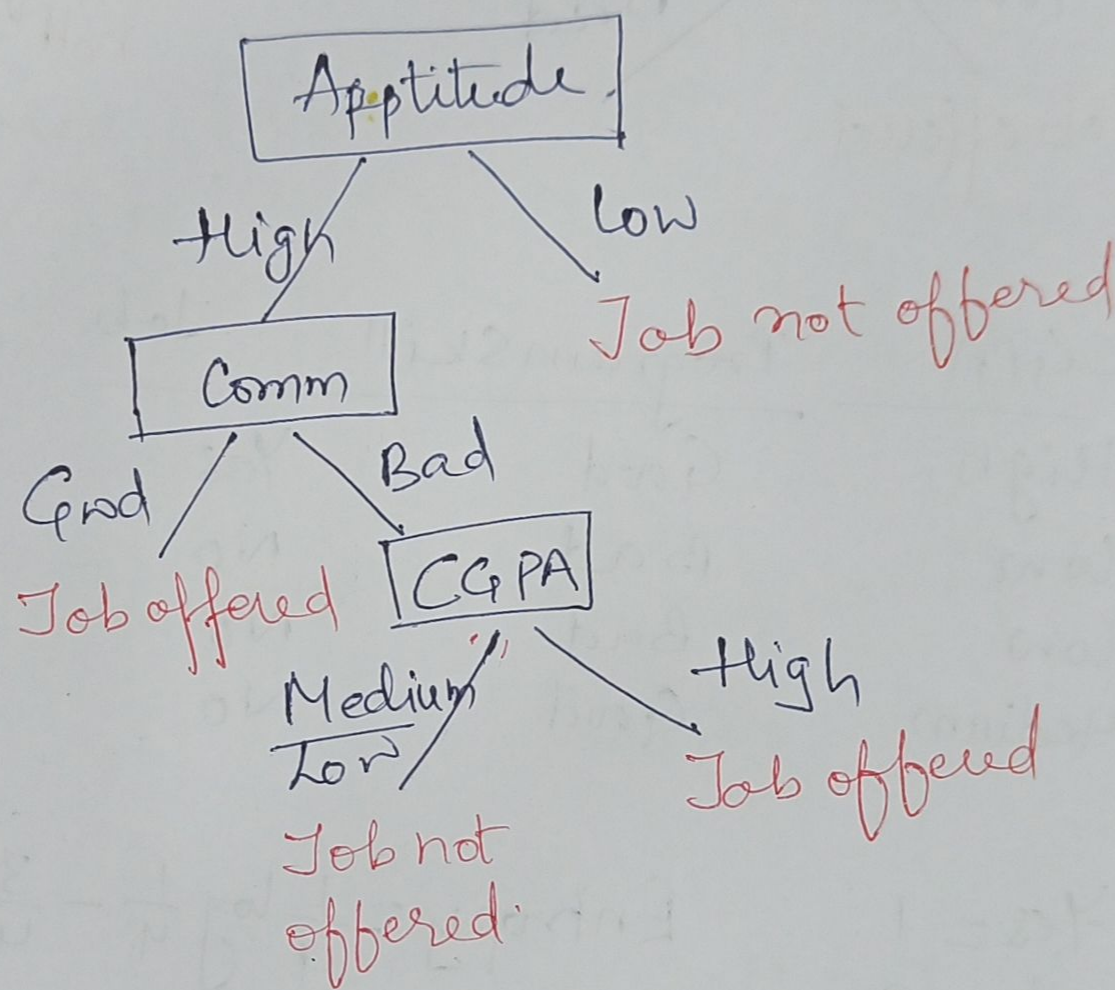 Apptitude
High
low
Job not offered
Comm
Good
Bad
Job offered
CGPA
Medium
Low
High
Job offered
Job not
offered.